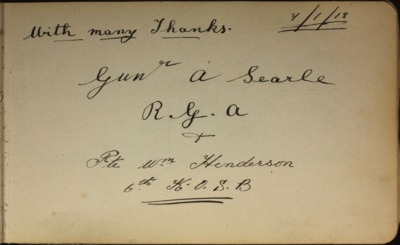 With many Thanks.
4/1/18
Gunr A Searle
R.G.A
+
Pte Wm Henderson
6th K.O.S.B